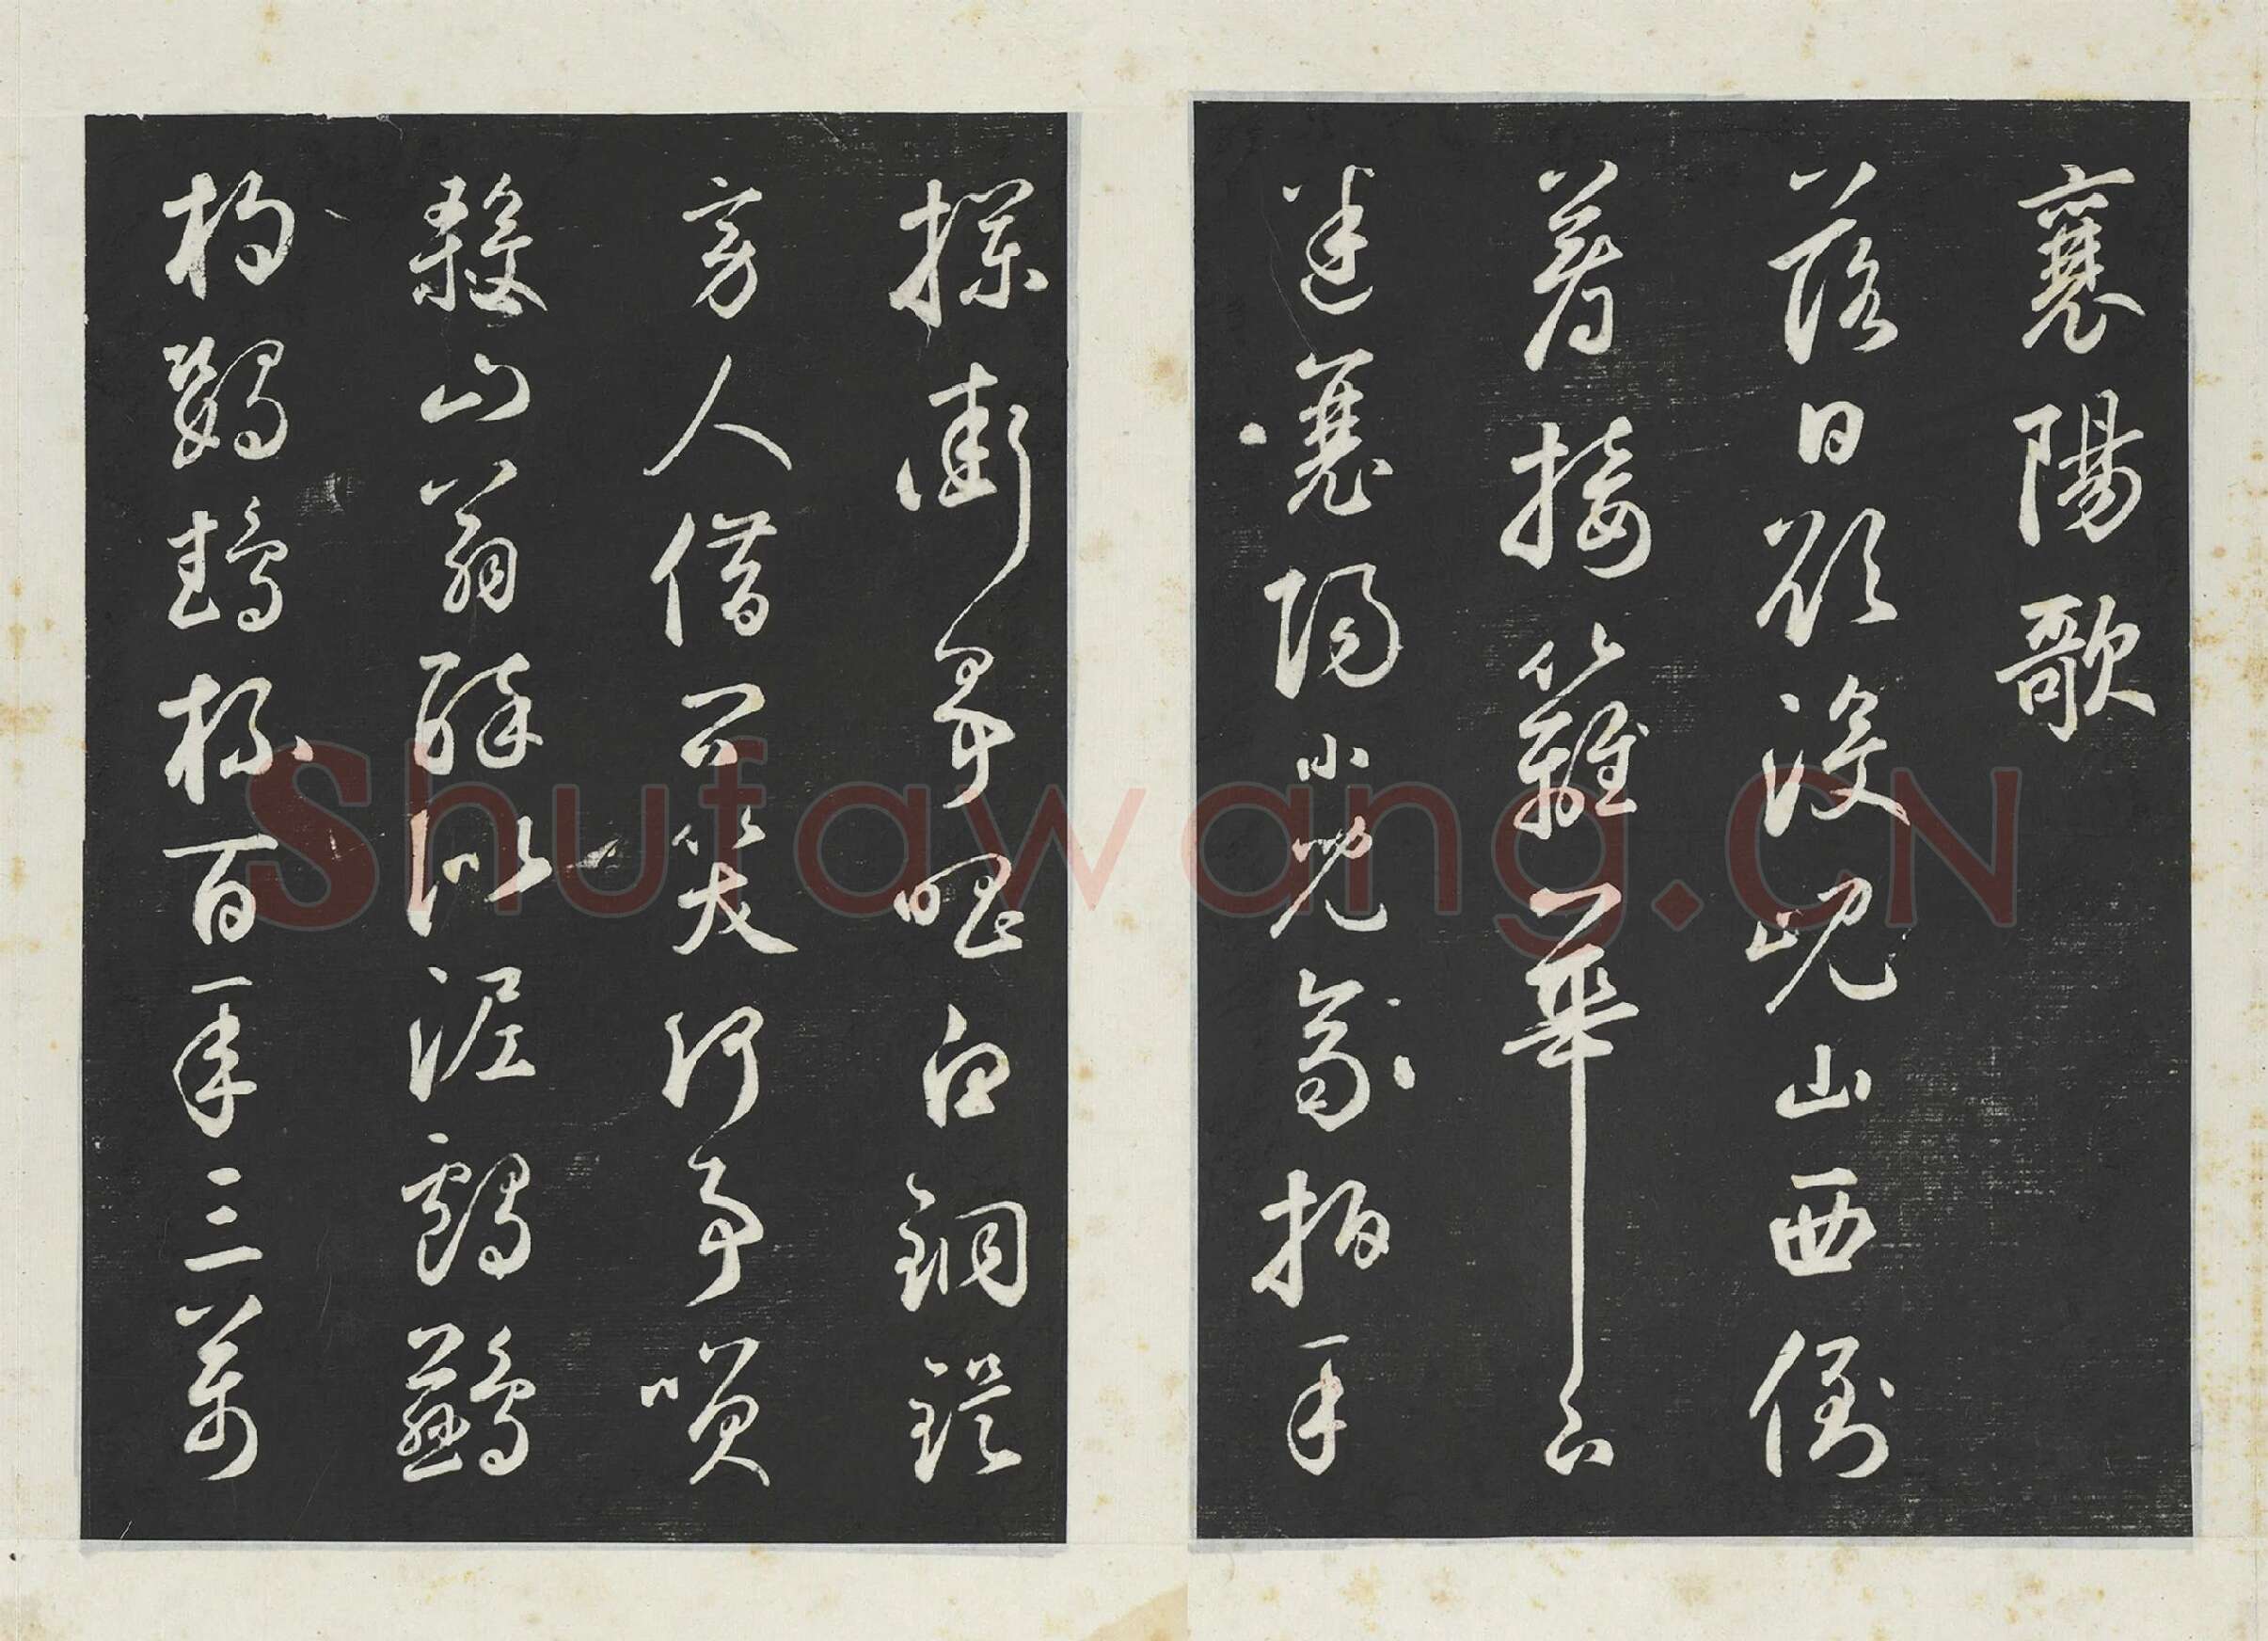 襄陽歌
落日欲沒峴山西倒
着接籬華下
迷襄陽小兒齊拍手
攔街爭唱白銅鍉
旁人借問笑何事咲
殺山翁醉似泥鸕鶿
杓鸚鵡杯百年三萬
Shufawang.CN